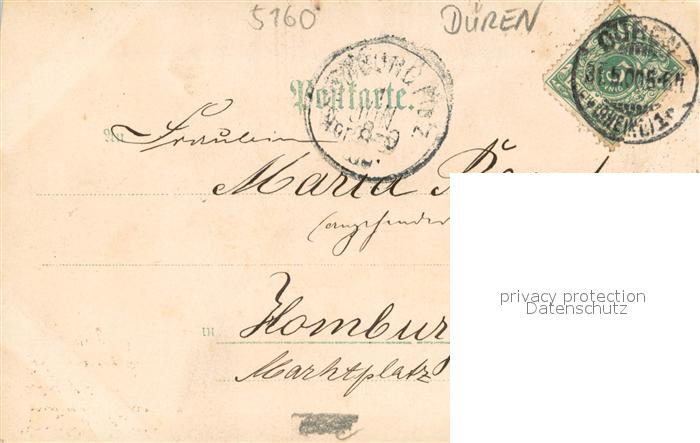 5160 DÜREN
DÜREN
Postkarte.
An Fräulein
Maria
(angehender
in Hombur
Marktplatz
privacy protection
Datenschutz